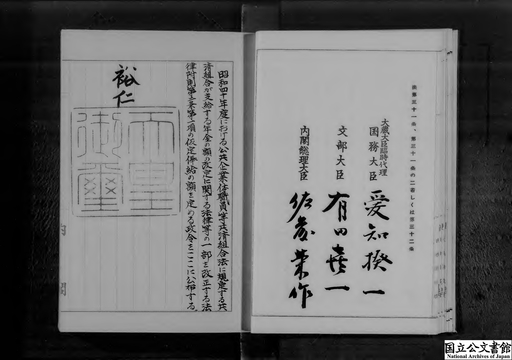 法第三十一条、第三十一条の二若しくは第三十二条
大蔵大臣臨時代理
国務大臣 愛知揆一
文部大臣 有田喜一
内閣総理大臣 佐藤榮作
昭和四十年度における公共企業体職員等共済組合法に規定する共
済組合が支給する年金の額の改定に関する法律等の一部を改正する法
律附則第三条第二項の仮定俸給の額を定める政令をここに公布する。
裕仁
天皇
御璽
国立公文書館
National Archives of Japan